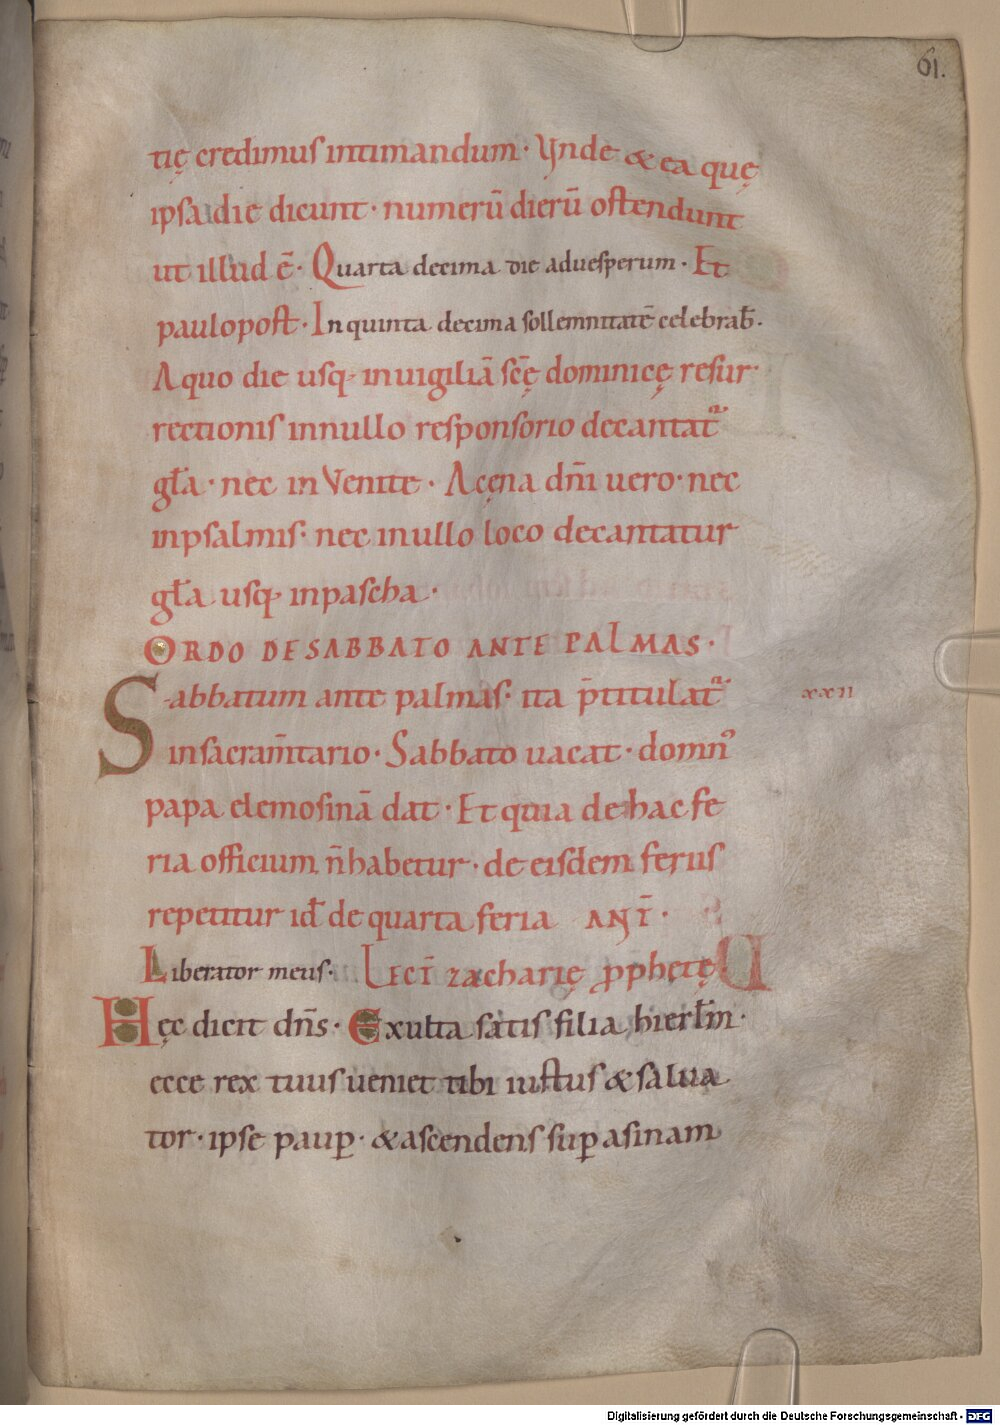 61.
tię credimus intimandum · Vnde & ea quę
ipsa die dicunt · numerū dierū ostendunt
ut illud ē · Quarta decima die aduesperum · Et
paulopost · In quinta decima sollemnitatē celebrab̄ .
A quo die usq· inuigiliā scę̄ dominicę resur·
rectionis innullo responsorio decantat᷑
gła · nec in Venite · Acęna dn̄i uero · nec
inpsalmis · nec inullo loco decantatur
gła usq· inpascha ·
ORDO DE SABBATO ANTE PALMAS ·
Sabbatum ante palmas · ita p̄titulat᷑
xxii
insacram̄tario · Sabbato uacat · domn᾿
papa elemosinā dat · Et quia de hac fe
ria officium n̄ habetur · de eisdem feriis
repetitur id̄ de quarta feria ANT̄ ·
Liberator meus · LECT̄ zacharię ꝓphetę
Hęc dicit dn̄s · Exulta satis filia hierłm ·
ecce rex tuus ueniet tibi iustus & salua
tor · ipse paup̲ · & ascendens sup̲ asinam
Digitalisierung gefördert durch die Deutsche Forschungsgemeinschaft - DFG